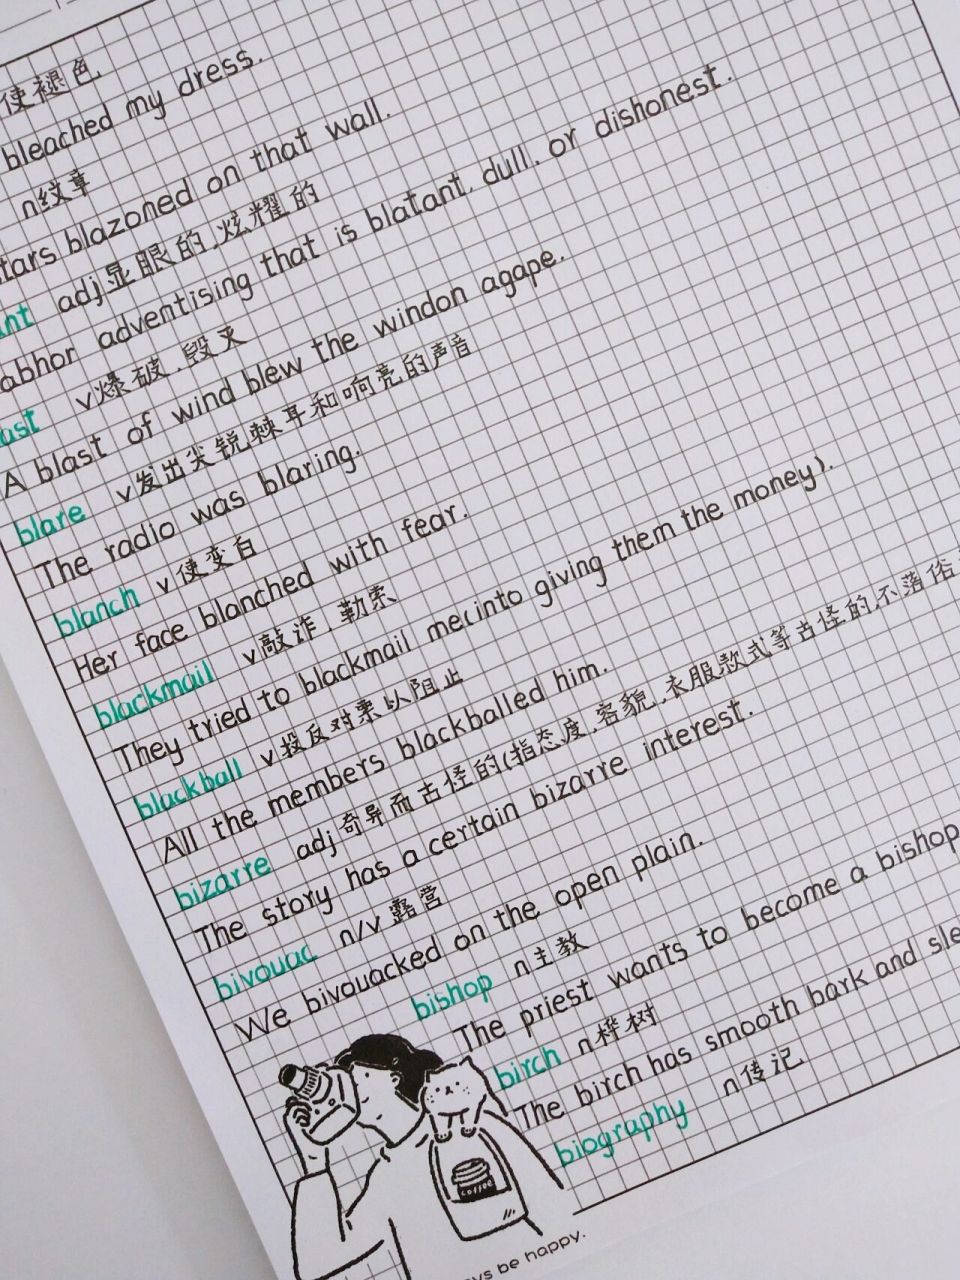 使褪色
bleached my dress.
n纹章
tars blazoned on that wall.
ant adj显眼的,炫耀的
abhor adventising that is blatant, dull, or dishonest.
ast v爆破,毁灭
A blast of wind blew the windon agape.
blare v发出尖锐,棘耳和响亮的声音
The radio was blaring.
blanch v使变白
Her face blanched with fear.
blackmail v敲诈,勒索
They tried to blackmail me(into giving them the money).
blackball v投反对票以阻止
All the members blackballed him.
bizarre adj奇异而古怪的(指态度,容貌,衣服款式等古怪的,不落俗
The story has a certain bizarre interest.
bivouac n/v露营
We bivouacked on the open plain.
bishop n主教
The priest wants to become a bishop
birch n桦树
The birch has smooth bark and sle
biography n传记
coffee
ys be happy.